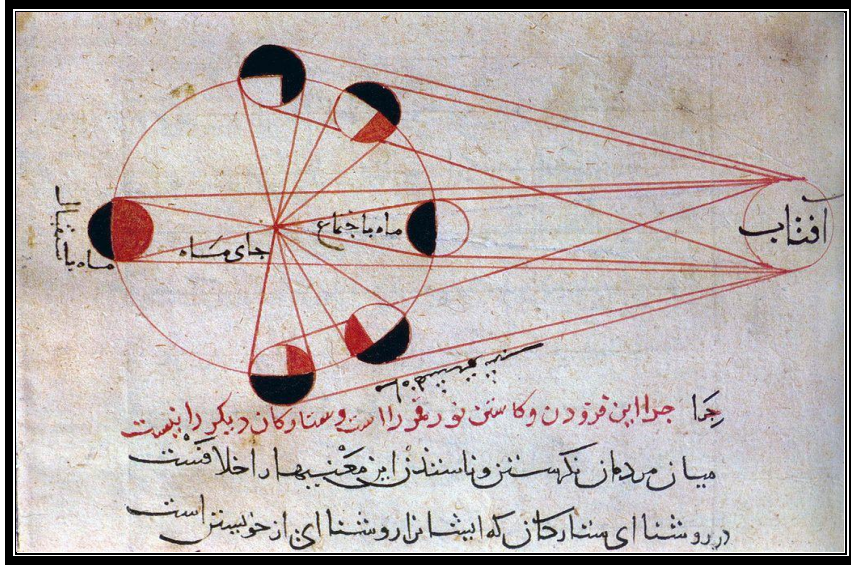 افتاب
ماه باجتماع
جای ماه
ماه باستقبال
چرا این فزودن و کاستن نور قمر را است و ستارکان دیکر را نیست
میان مردمان نکرستن و ناستدن این معنیها را خلافست
در روشنا ای ستارکان که ایشانرا روشنا ای از خویستن است